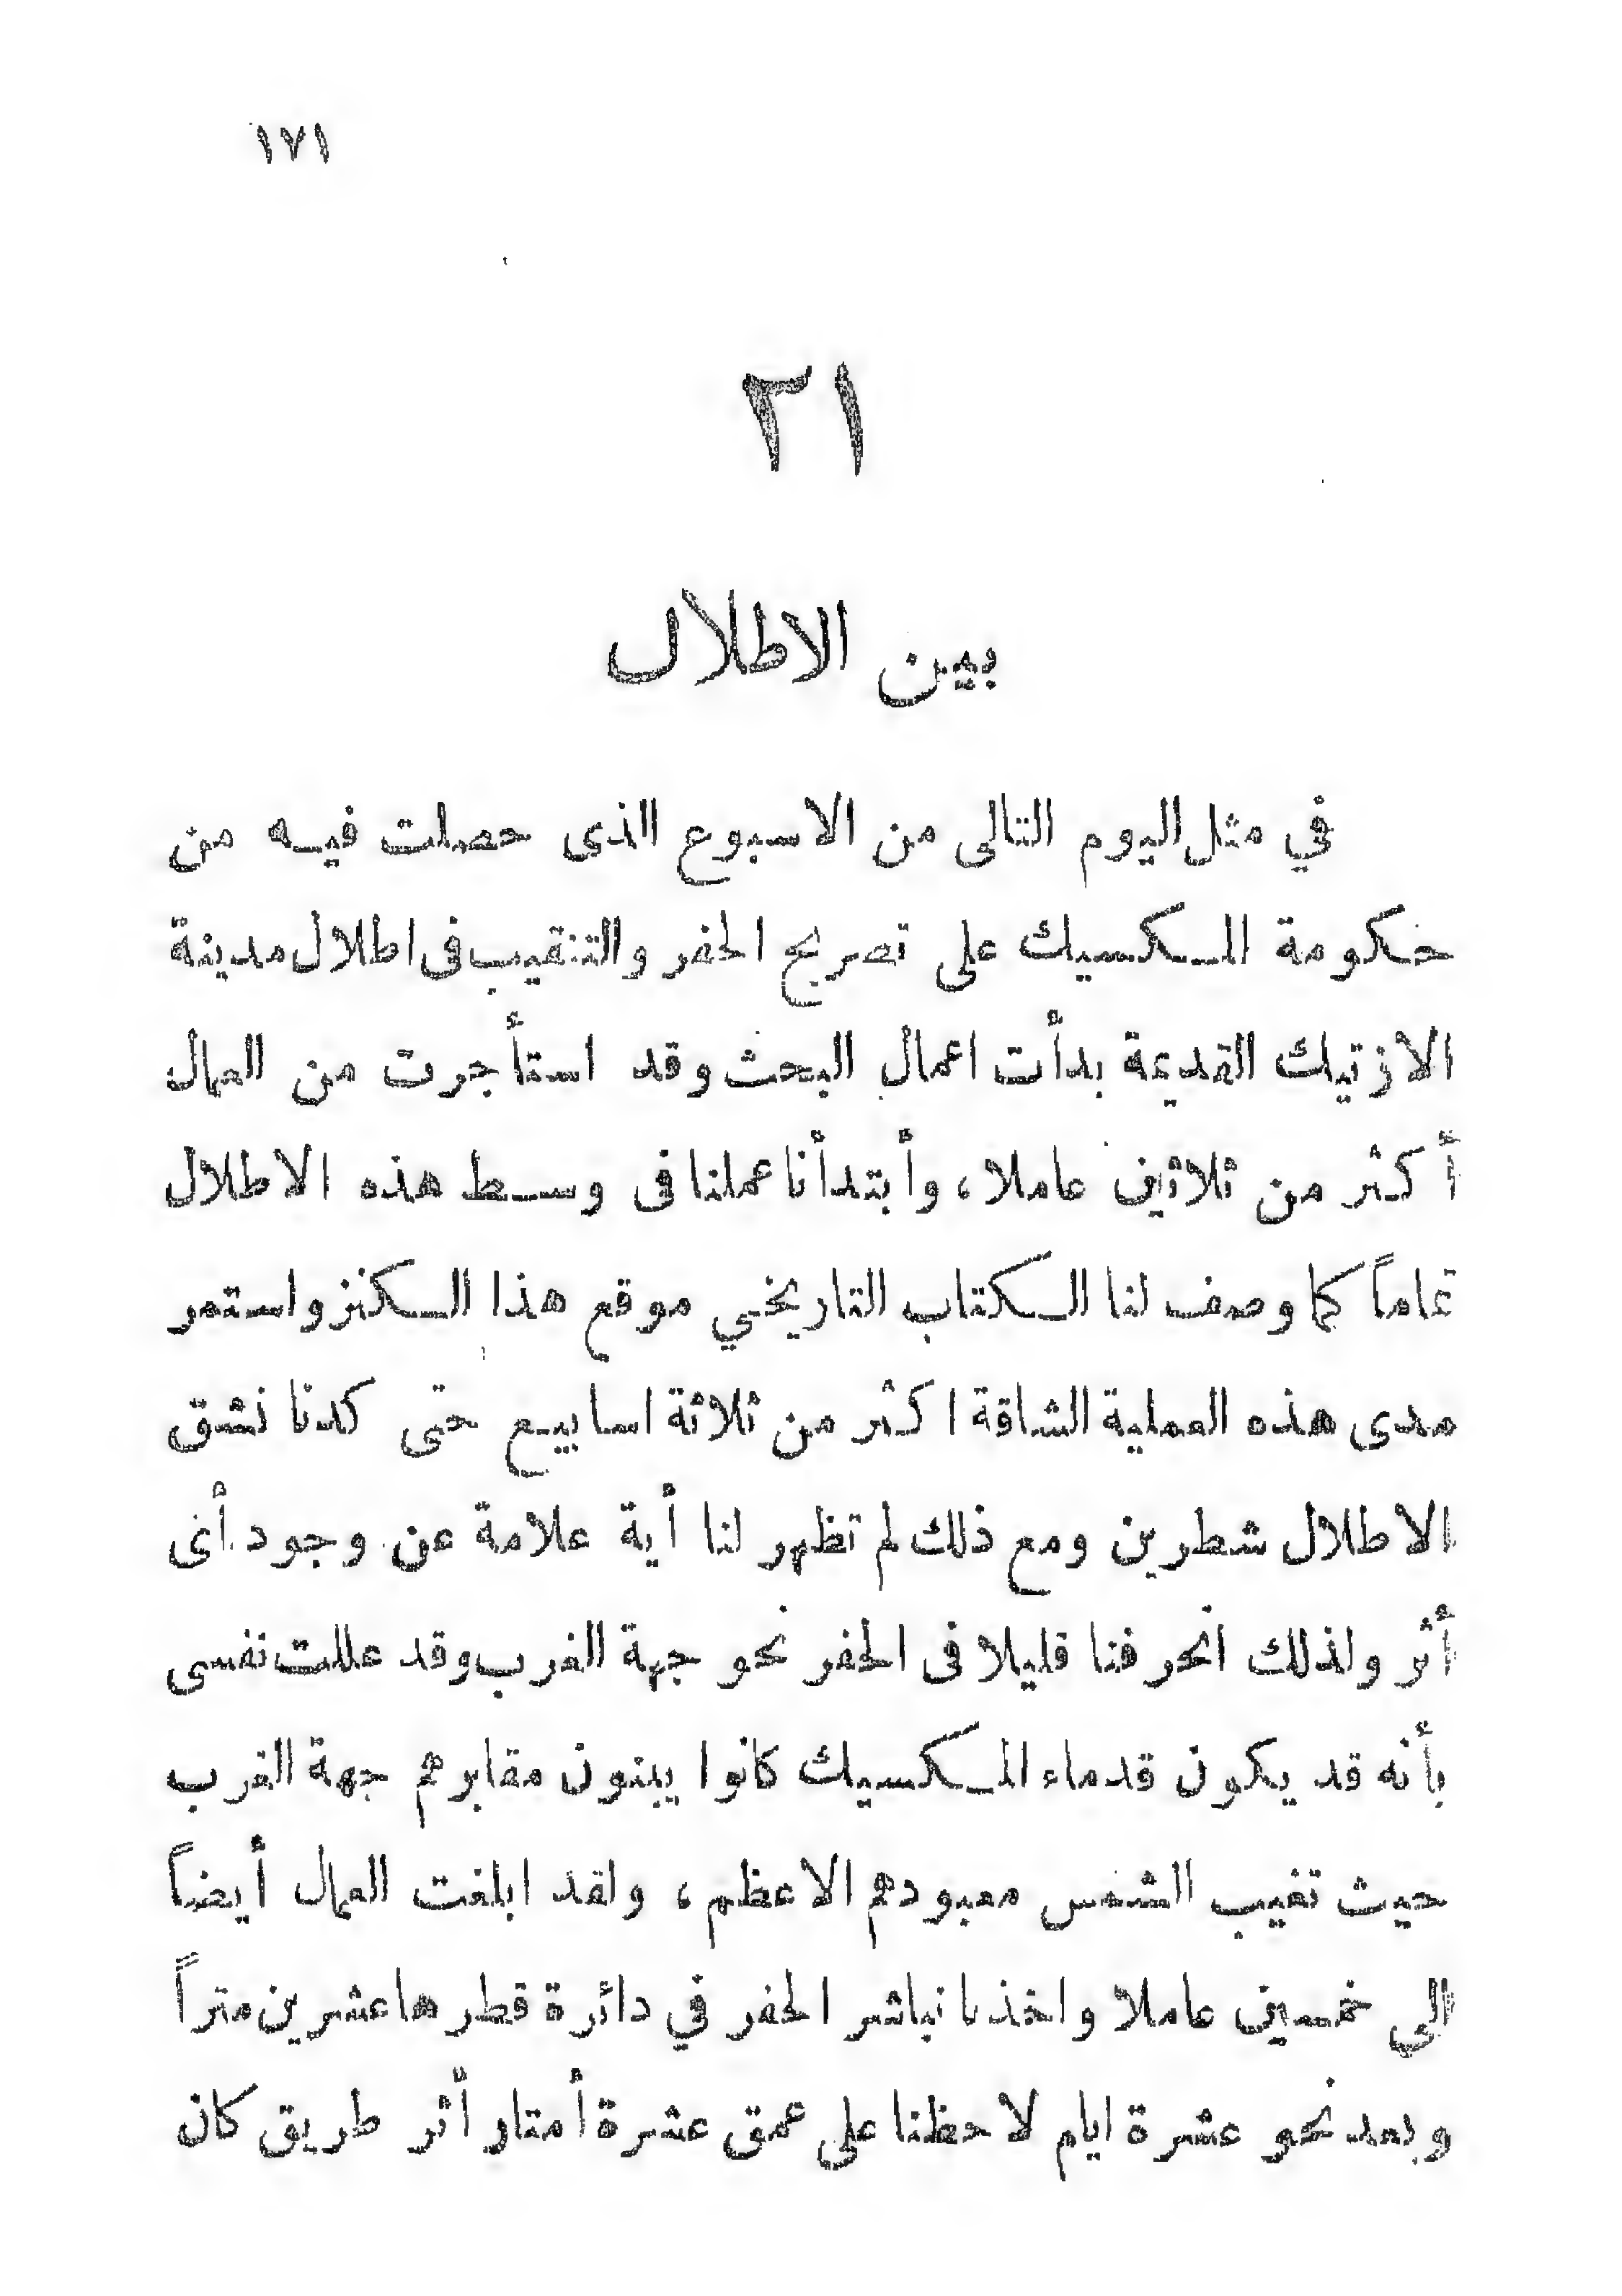 ١٧١
٢١
بين الاطلال
في مثل اليوم التالى من الاسبوع الذى حصلت فيه من
حكومة المكسيك على تصريح الحفر والتنقيب فى اطلال مدينة
الازتيك القديمة بدأت اعمال البحث وقد استأجرت من العمال
أكثر من ثلاثين عاملا، وأبتدأنا عملنا فى وسط هذه الاطلال
تماماً كما وصف لنا الكتاب التاريخي موقع هذا الكنز واستمر
مدى هذه العملية الشاقة اكثر من ثلاثة اسابيع حتى كدنا نشق
الاطلال شطرين ومع ذلك لم تظهر لنا أية علامة عن وجود أى
أثر ولذلك انحرفنا قليلا فى الحفر نحو جهة الغرب وقد عللت نفسى
بأنه قد يكون قدماء المكسيك كانوا يبنون مقابرهم جهة الغرب
حيث تغيب الشمس معبودهم الاعظم، ولقد ابلغت العمال أيضاً
الى خمسين عاملا واخذنا نباشر الحفر في دائرة قطرها عشرين متراً
وبعد نحو عشرة ايام لاحظنا على عمق عشرة أمتار أثر طريق كان